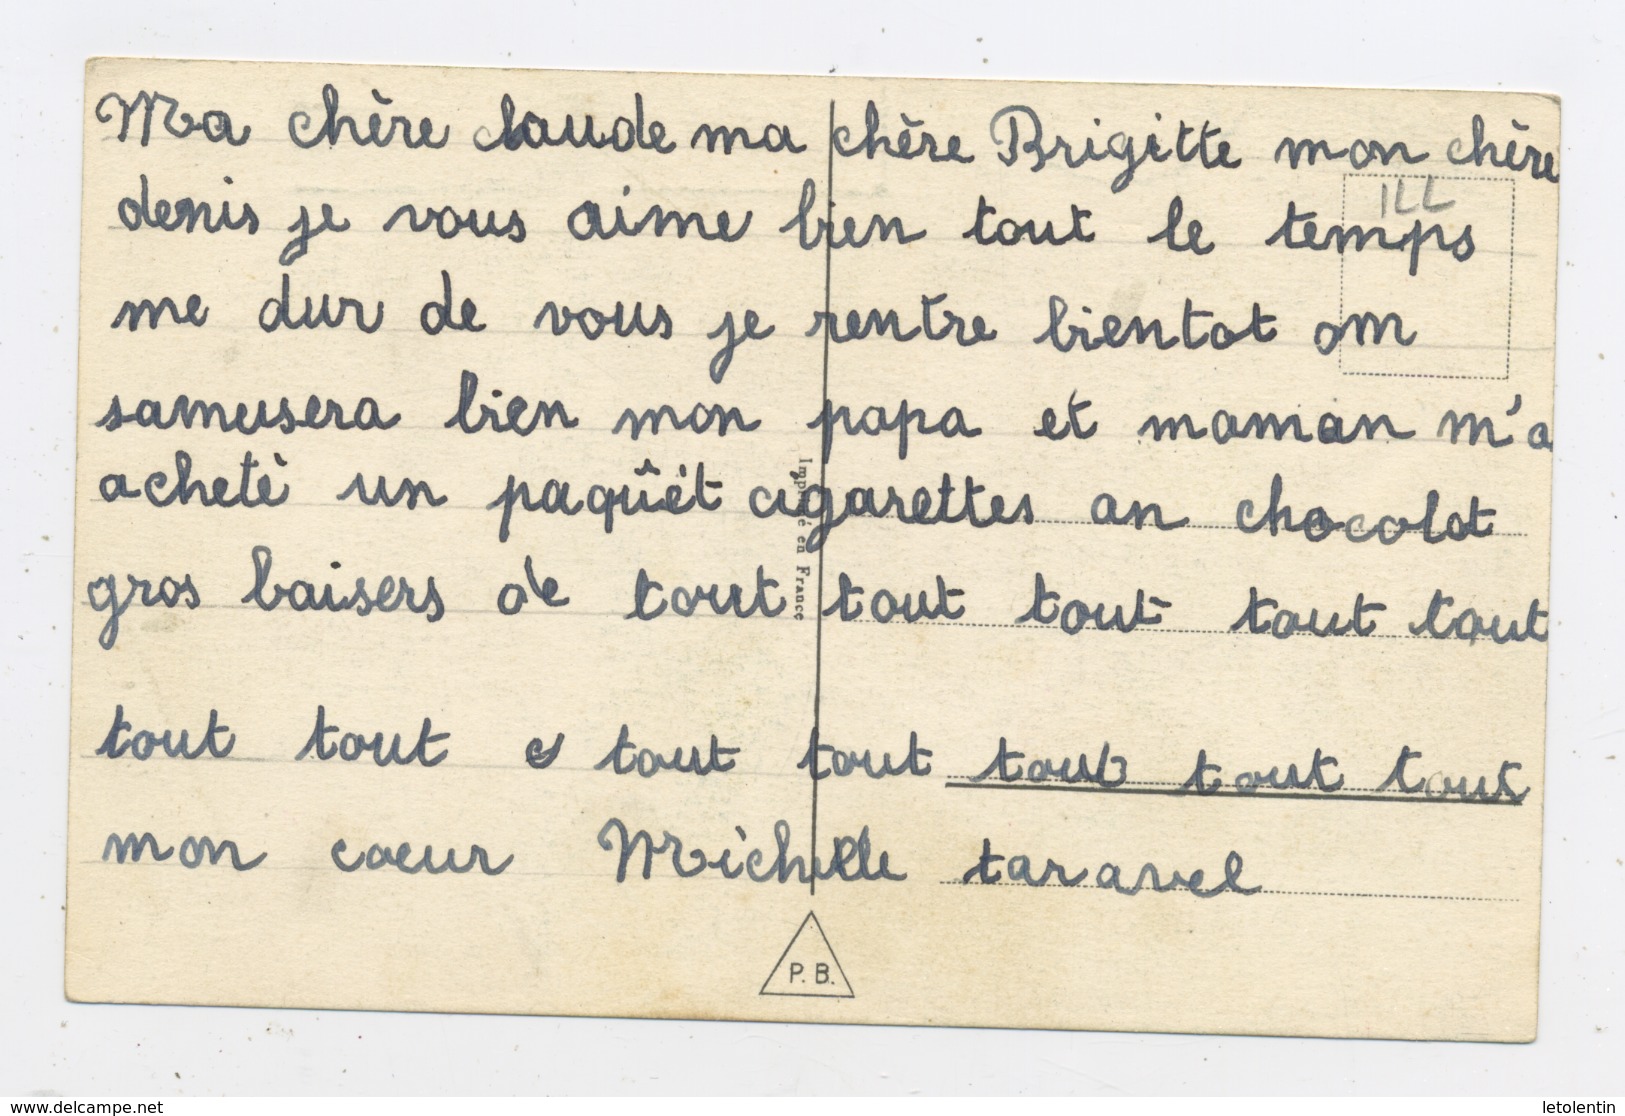 Ma chère claude ma chère Brigitte mon chère
ILL
denis je vous aime bien tout le temps
me dur de vous je rentre bientot om
samusera bien mon papa et maman m'a
achetè un paqûèt cigarettes an chocolat
gros baisers de tout tout tout tout tout
tout tout tout tout tout tout tout
mon coeur Michelle taravel
Imprimé en France
P.B.
www.delcampe.net
letolentin